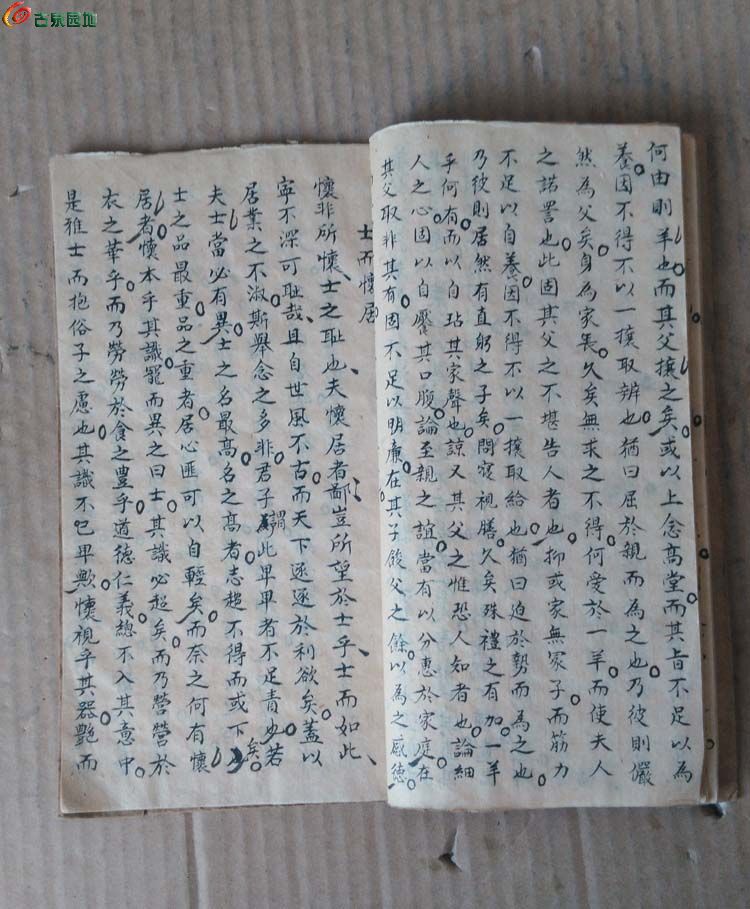 古泉园地
何由則羊也而其父攘之矣或以上念高堂而其旨不足以為
養因不得不以一攘取辨也猶曰屈於親而為之也乃彼則儼
然為父矣身為家長久矣無求之不得何愛於一羊而使夫人
之諾詈也此固其父之不堪告人者也抑或家無冢子而筋力
不足以自養因不得不以一攘取給也猶曰迫於勢而為之也
乃彼則居然有直躬之子矣問寢視膳久矣殊禮之有加一羊
乎何有而以自玷其家聲也諒又其父之惟恐人知者也論細
人之心固以自饜其口腹論至親之誼當有以分惠於家庭在
其父取非其有固不足以明廉在其子飲父之餘以為之感德
士而懷居
懷非所懷士之耻也夫懷居者鄙豈所望於士乎士而如此
寧不深可耻哉且自世風不古而天下逐逐於利欲矣蓋以
居業之不淑斯舉念之多非君子謂此卑卑者不足責也若
夫士當必有異士之名最高名之高者志趨不得而或下矣
士之品最重品之重者居心匪可以自輕矣而奈之何有懷
居者懷本乎其識寵而異之曰士其識必超矣而乃營營於
衣之華乎而乃勞勞於食之豐乎道德仁義總不入其意中
是雅士而抱俗子之慮也其識不已卑歟懷視乎其器艷而